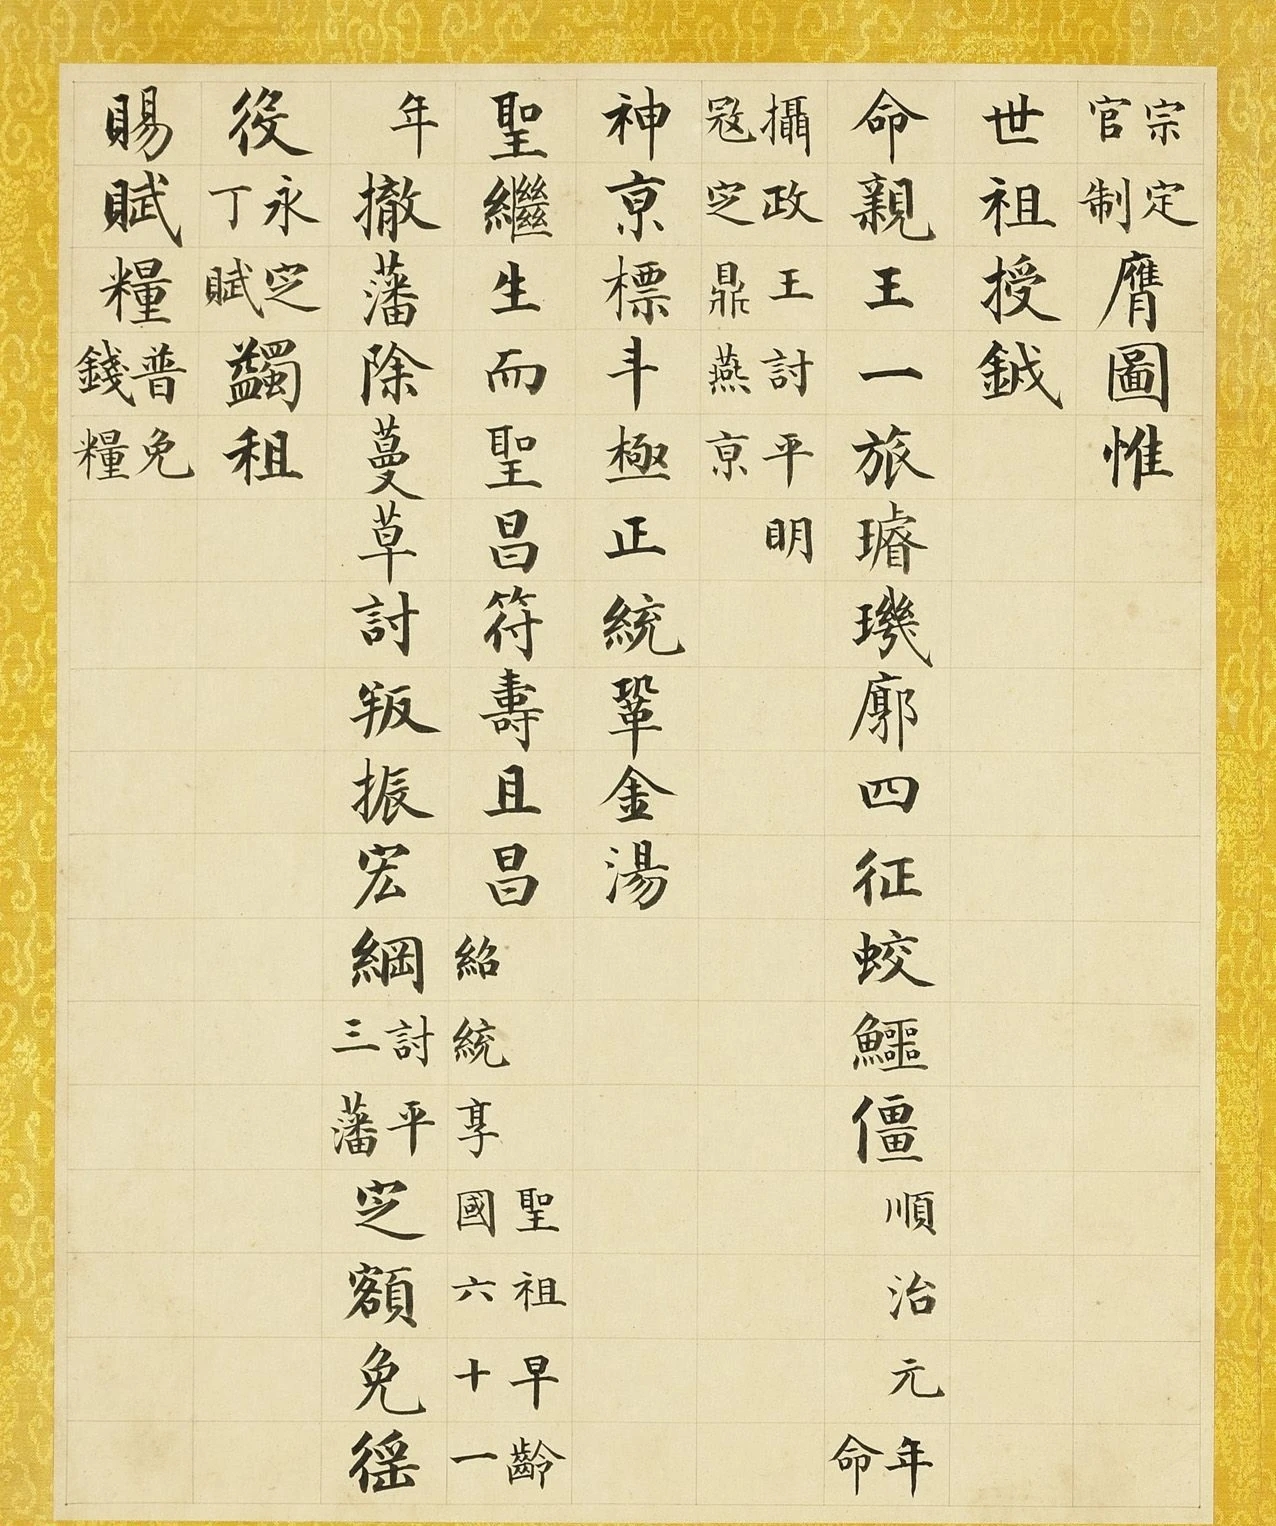 宗定官制膺圖惟
世祖授鉞
命親王一旅璿璣廓四征蛟鱷僵順治元年命
攝政王討平明冦定鼎燕亰
神亰標斗極正統鞏金湯
聖繼生而聖昌符壽且昌聖祖早齡紹統享國六十一
年撤藩除蔓草討叛振宏綱討平三藩定額免徭
役永定丁賦蠲租
賜賦糧普免錢糧